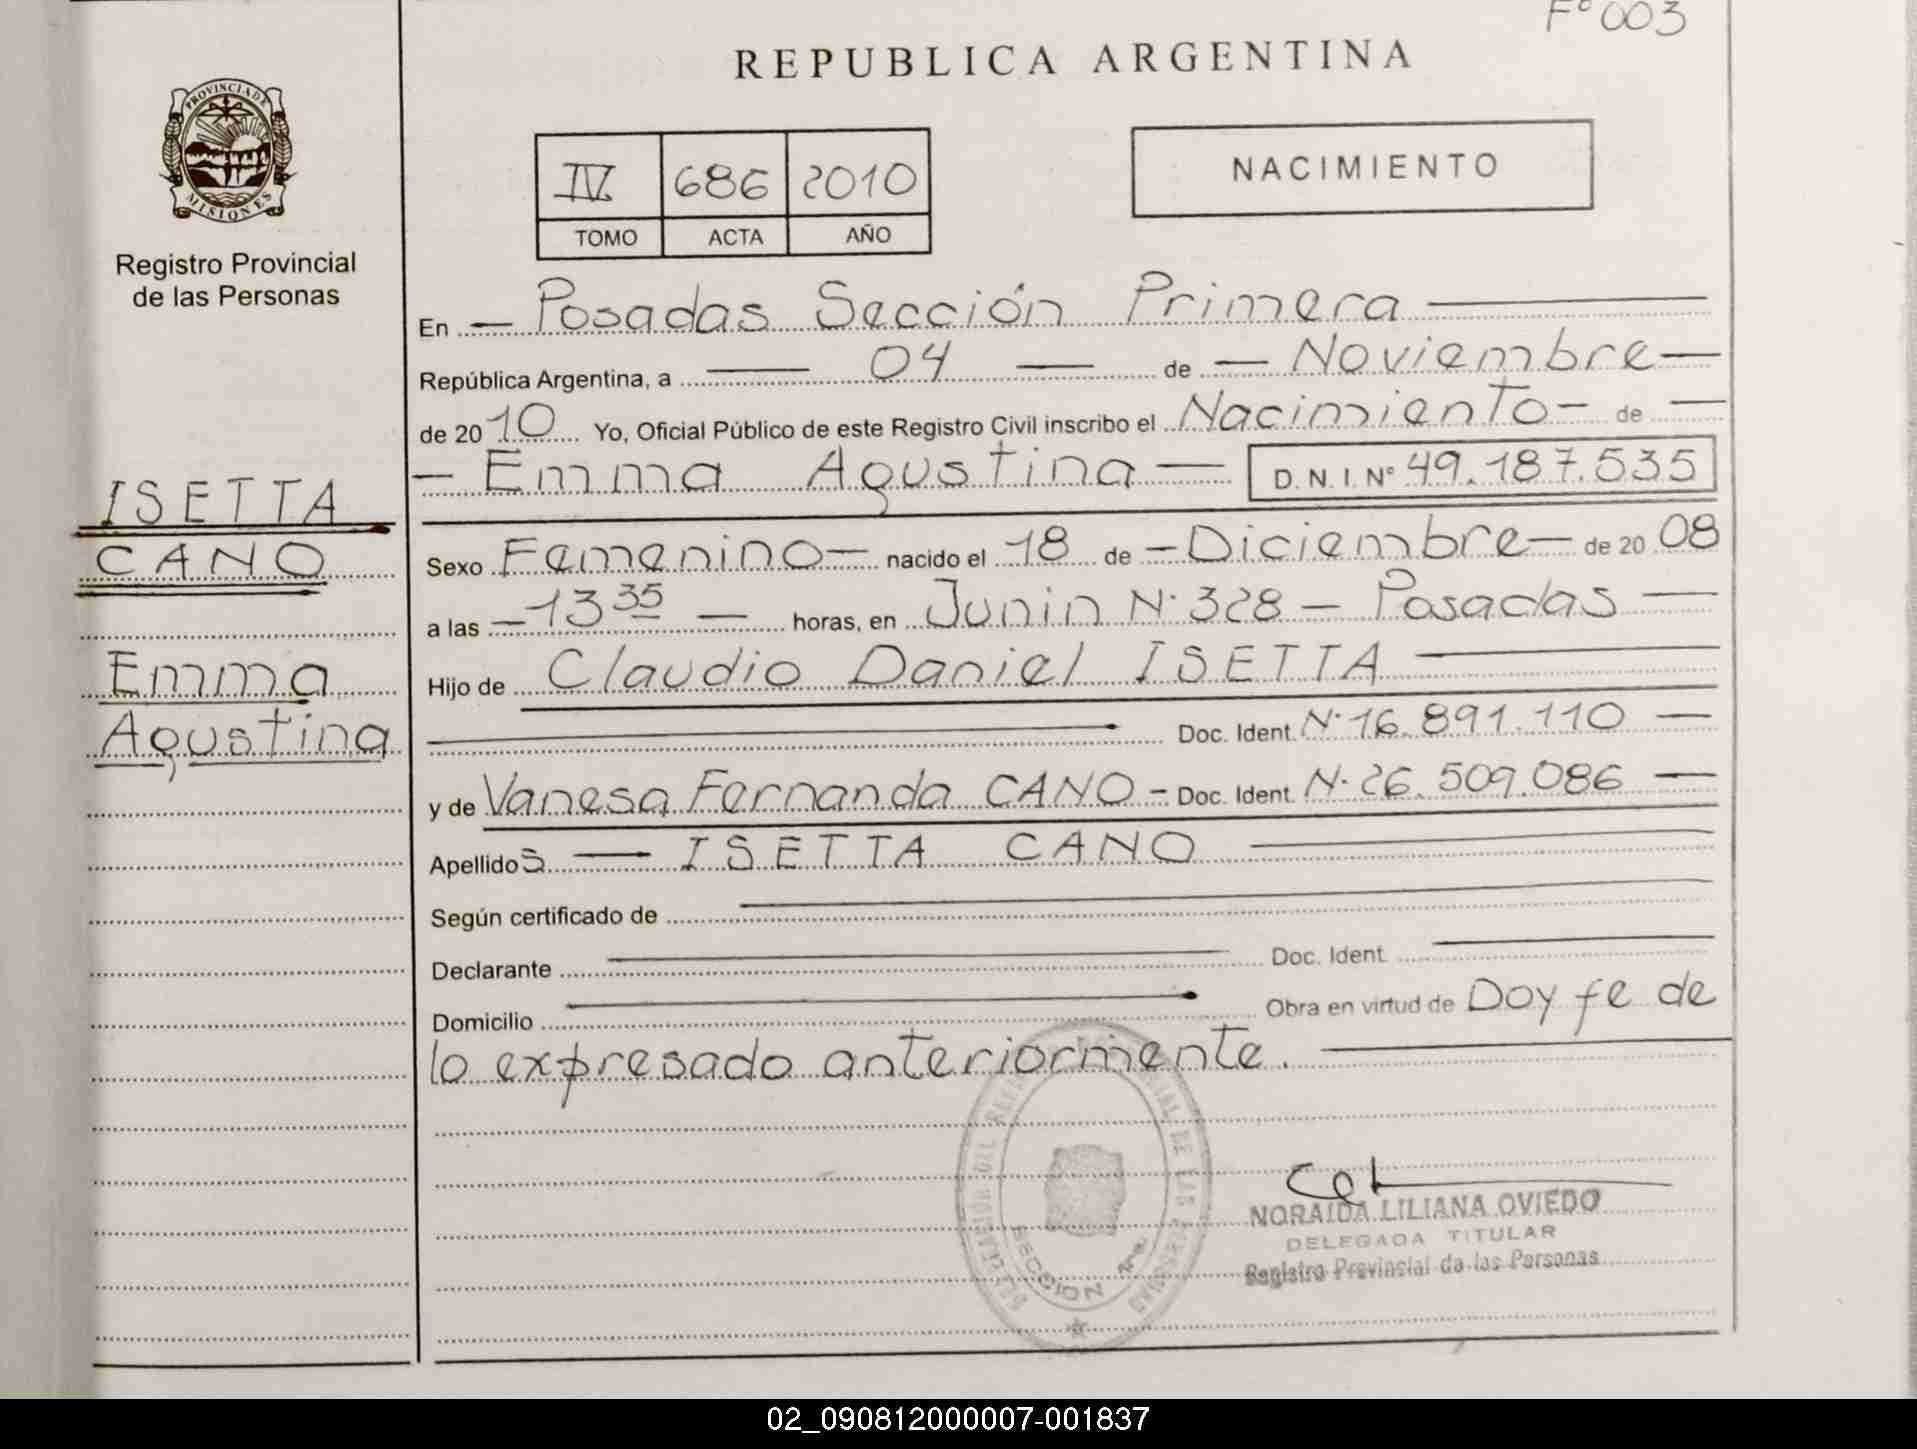 Fº 003
REPUBLICA ARGENTINA
PROVINCIA DE
MISIONES
Registro Provincial
de las Personas
IV 686 2010
TOMO ACTA AÑO
NACIMIENTO
En Posadas Sección Primera
República Argentina, a 04 de Noviembre
de 2010 Yo, Oficial Público de este Registro Civil inscribo el Nacimiento de
Emma Agustina D.N.I.Nº 49.187.535
ISETTA
CANO
Emma
Agustina
Sexo Femenino nacido el 18 de Diciembre de 2008
a las 13 35 horas, en Junin N· 328 - Posadas
Hijo de Claudio Daniel ISETTA
Doc. Ident. N· 16.891.110
y de Vanesa Fernanda CANO - Doc. Ident. N· 26.509.086
Apellidos ISETTA CANO
Según certificado de
Declarante Doc. Ident.
Domicilio Obra en virtud de Doy fe de
lo expresado anteriormente.
DELEGACIÓN DEL REGISTRO PROVINCIAL DE LAS PERSONAS
SECCION 1ra.
NORAIDA LILIANA OVIEDO
DELEGADA TITULAR
Registro Provincial de las Personas
02_090812000007-001837